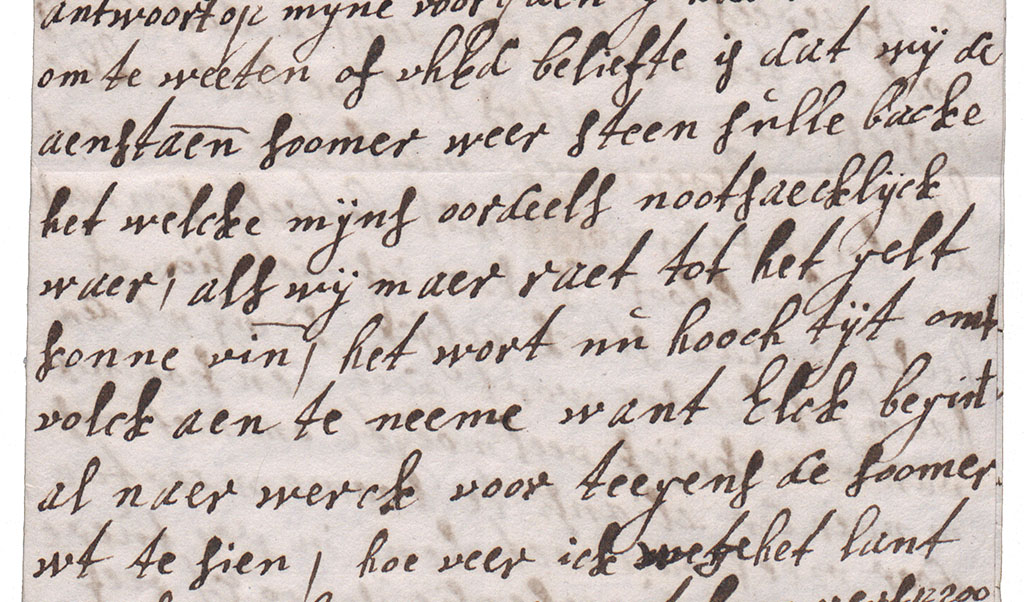 antwoort op mijne voor
om te weeten of uhEd beliefte is dat wij de
aenstaen soomer weer steen sulle backe
het welcke mijns oordeels nootsaecklijck
waer, als wij maer raet tot het gelt
konne vin, het wort nu hooch tijt om
volck aen te neeme want Elck begint
al naer werck voor teegens de soomer
wt te sien, hoe veer ick het lant